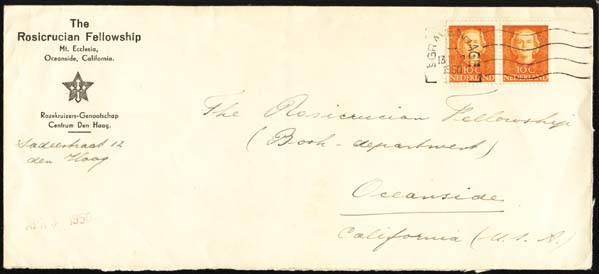 The
Rosicrucian Fellowship
Mt. Ecclesia,
Oceanside, California.
Rozekruizers-Genootschap
Centrum Den Haag.
Sadeestraat 12
den Haag
APR 3 1950
'SGRAVENHAGE
1950
10C
NEDERLAND
10C
NEDERLAND
The Rosicrucian Fellowship
(Book-department)
Oceanside
California (U.S.A.)